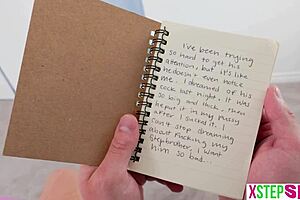 I've been trying
so hard to get his
attention, but it's like
he doesn't even note
me. I dreamed of his
cock last night. It was
so big and thick. Then
he put it in my pussy
after I sucked it. I
can't stop dreaming
about fucking my
stepbrother. I want
him so bad...
XSTEPS